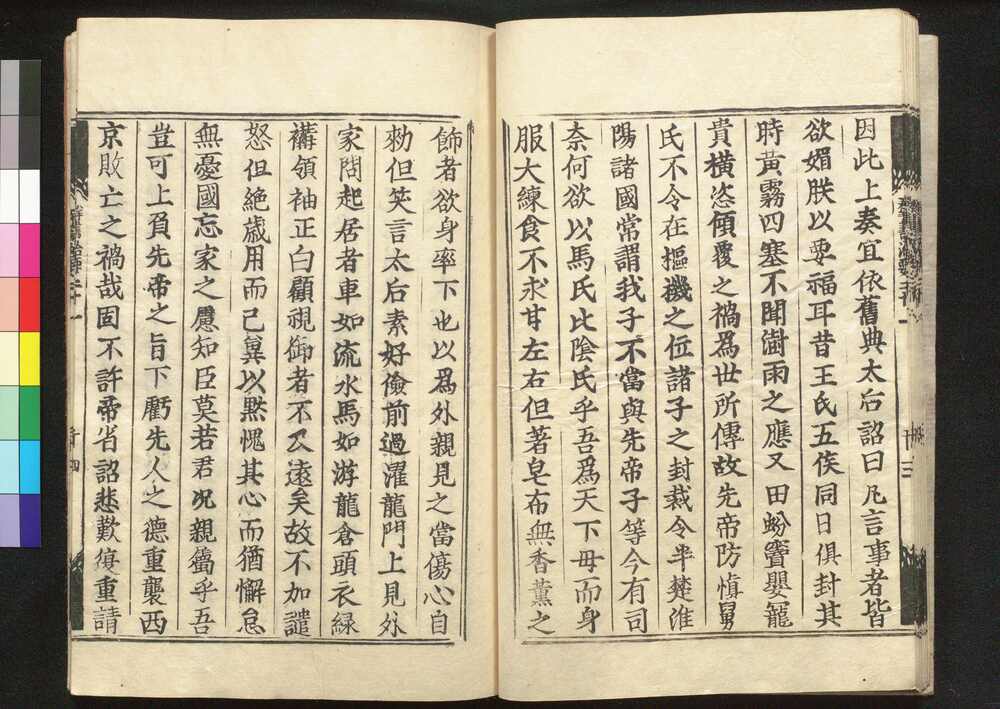 因此上奏宜依舊典太后詔曰凡言事者皆
欲媚朕以要福耳昔王氏五侯同日俱封其
時黃霧四塞不聞澍雨之應又田蚡竇嬰寵
貴橫恣傾覆之禍爲世所傳故先帝防愼舅
氏不令在樞機之位諸子之封裁令半楚淮
陽諸國常謂我子不當與先帝子等今有司
奈何欲以馬氏比陰氏乎吾爲天下母而身
服大練食不求甘左右但著皂布無香薰之
飾者欲身率下也以爲外親見之當傷心自
勑但笑言太后素好儉前過濯龍門上見外
家問起居者車如流水馬如游龍倉頭衣綠
褠領袖正白顧視御者不及遠矣故不加譴
怒但絶歳用而已兾以默愧其心而猶懈怠
無憂國忘家之慮知臣莫若君况親屬乎吾
豈可上負先帝之旨下虧先人之德重襲西
京敗亡之禍哉固不許帝省詔悲歎復重請
十三
十四